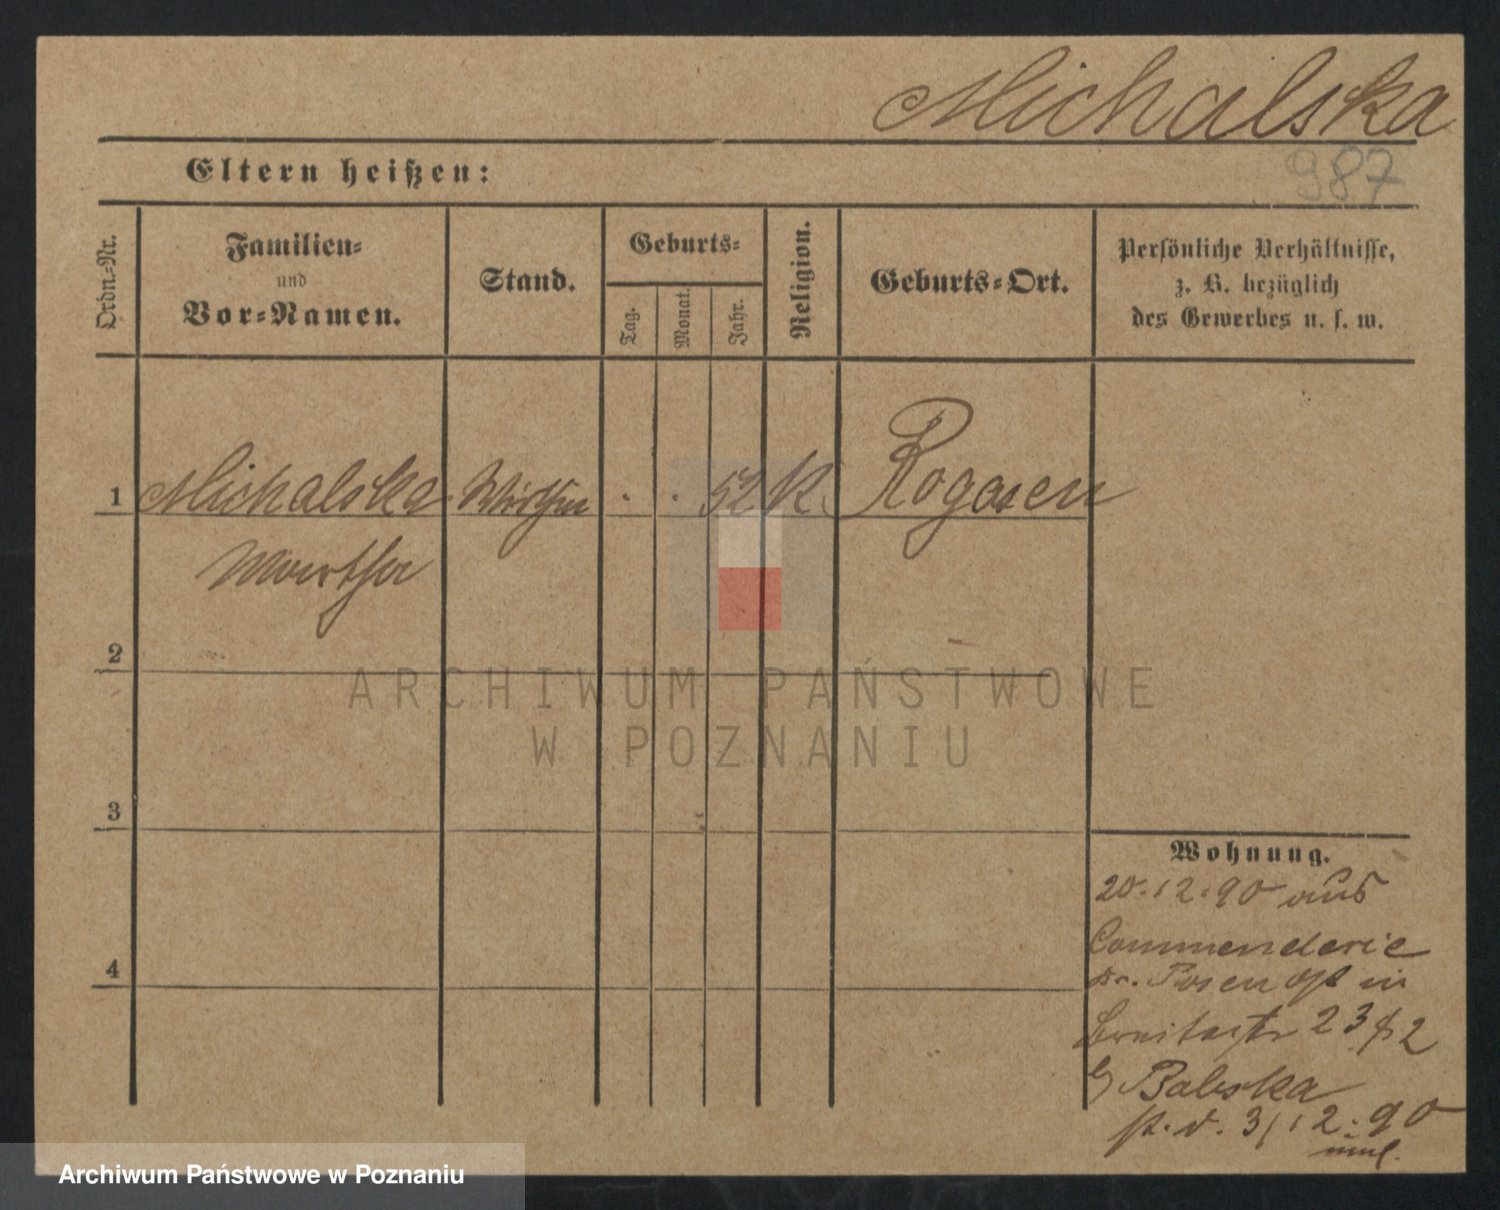 Michalska
987
Eltern heißen:
Ordn.-Nr.
Familien-
und
Vor-Namen.
Stand.
Geburts-
Tag.
Monat.
Jahr.
Religion.
Geburts-Ort.
Persönliche Verhältnisse,
z. B. bezüglich
des Gewerbes u. s. w.
1 Michalska Wirthin . . 52 K. Rogasen
Martha
2
3
4
Wohnung.
20.12.90 aus
Commenderie
Kr. Posen Ost in
Breitestr 23
Babska
p. d. 31 12.90
ARCHIWUM PAŃSTWOWE
W POZNANIU
Archiwum Państwowe w Poznaniu